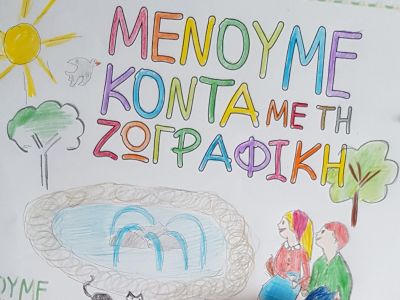 ΜΕΝΟΥΜΕ
ΚΟΝΤΑ ΜΕ ΤΗ
ΖΩΓΡΑΦΙΚΗ
ΟΥΜΕ